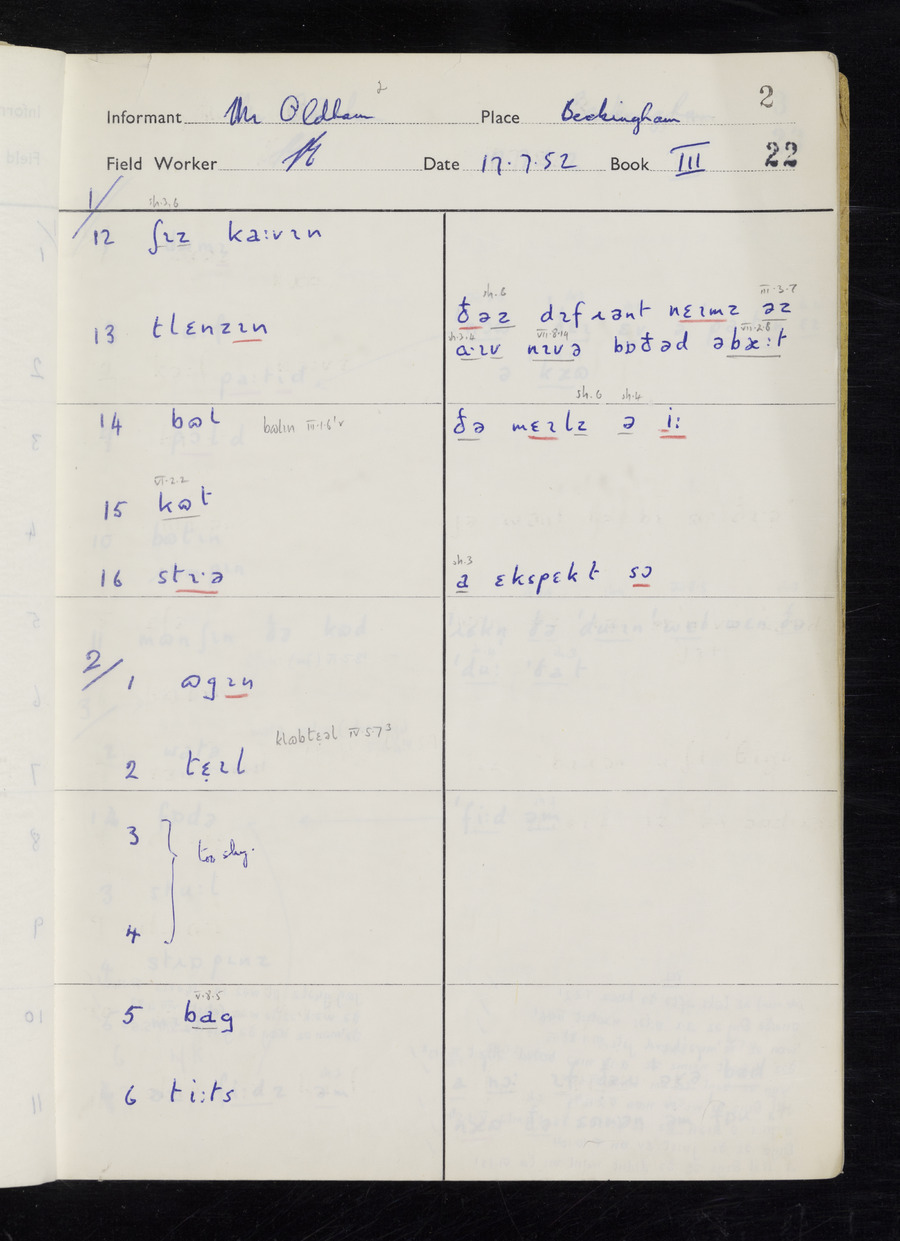 2
Informant Mr Oldham 2 Place Beckingham
Field Worker Date 17.7.52 Book III 22
1/
sh.3,6
12 ʃɪz kaːvɪn
sh.6 III.3.7
ðəz dɪfɹənt nɛɪmz əz
13 tlɛnzɪn
sh.3.4 VII.8.14 VII.2.8
aːɪv nɪvə bɒðəd əbæːt
sh.6 sh.4
14 bɷl bɷlɪn III.1.6'v ðə mɛɪlz ə iː
VI.2.2
15 kɷt
sh.3
16 strɪ·ə a ɛkspɛkt sɔ
2/
1 ɷgɪn
klɷbtɛəl IV 5.7³
2 tɛ̣ɪl
3
too shy.
4
V.8.5
5 bag
6 tiːts